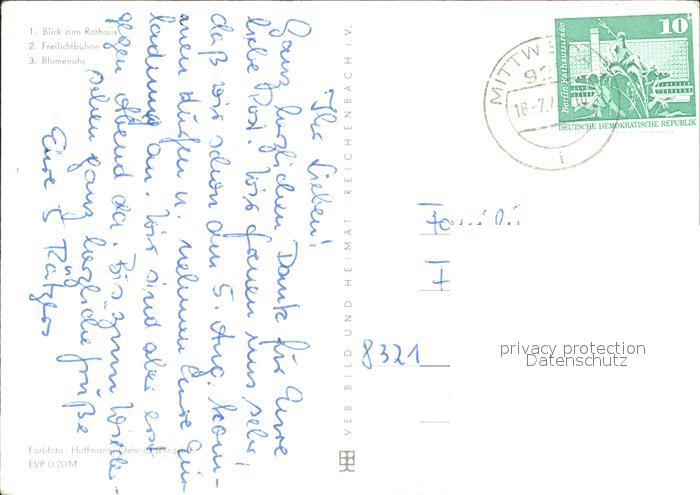 1. Blick zum Rathaus
2. Freilichtbühne
3. Blumenuhr
Ihr Lieben!
Ganz herzlichen Dank für Eure
liebe Post. Wir freuen uns sehr!
daß wir schon am 5. Aug. kom-
men dürfen u. nehmen Eure Ein-
ladung an. Wir sind aber erst
gegen Abend da. Bis zum Wieder-
sehen ganz herzliche Grüße
Eure 5
Farbfoto: Hoffmann, Oelsnitz (Erzgeb.)
EVP 0.20 M
VEB BILD UND HEIMAT REICHENBACH i.V.
MITTW
92
16.-7.7
i
10
Berlin, Rathausstraße
DEUTSCHE DEMOKRATISCHE REPUBLIK
Familie
8321
privacy protection
Datenschutz